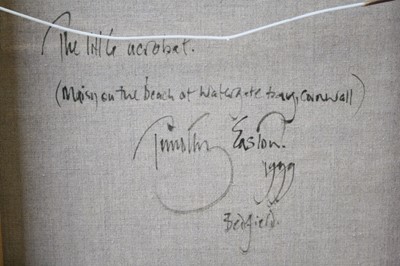 The little acrobat.
(Maisy on the beach at Watergate Bay, Cornwall)
Timothy Easton.
1999
Bedfield.